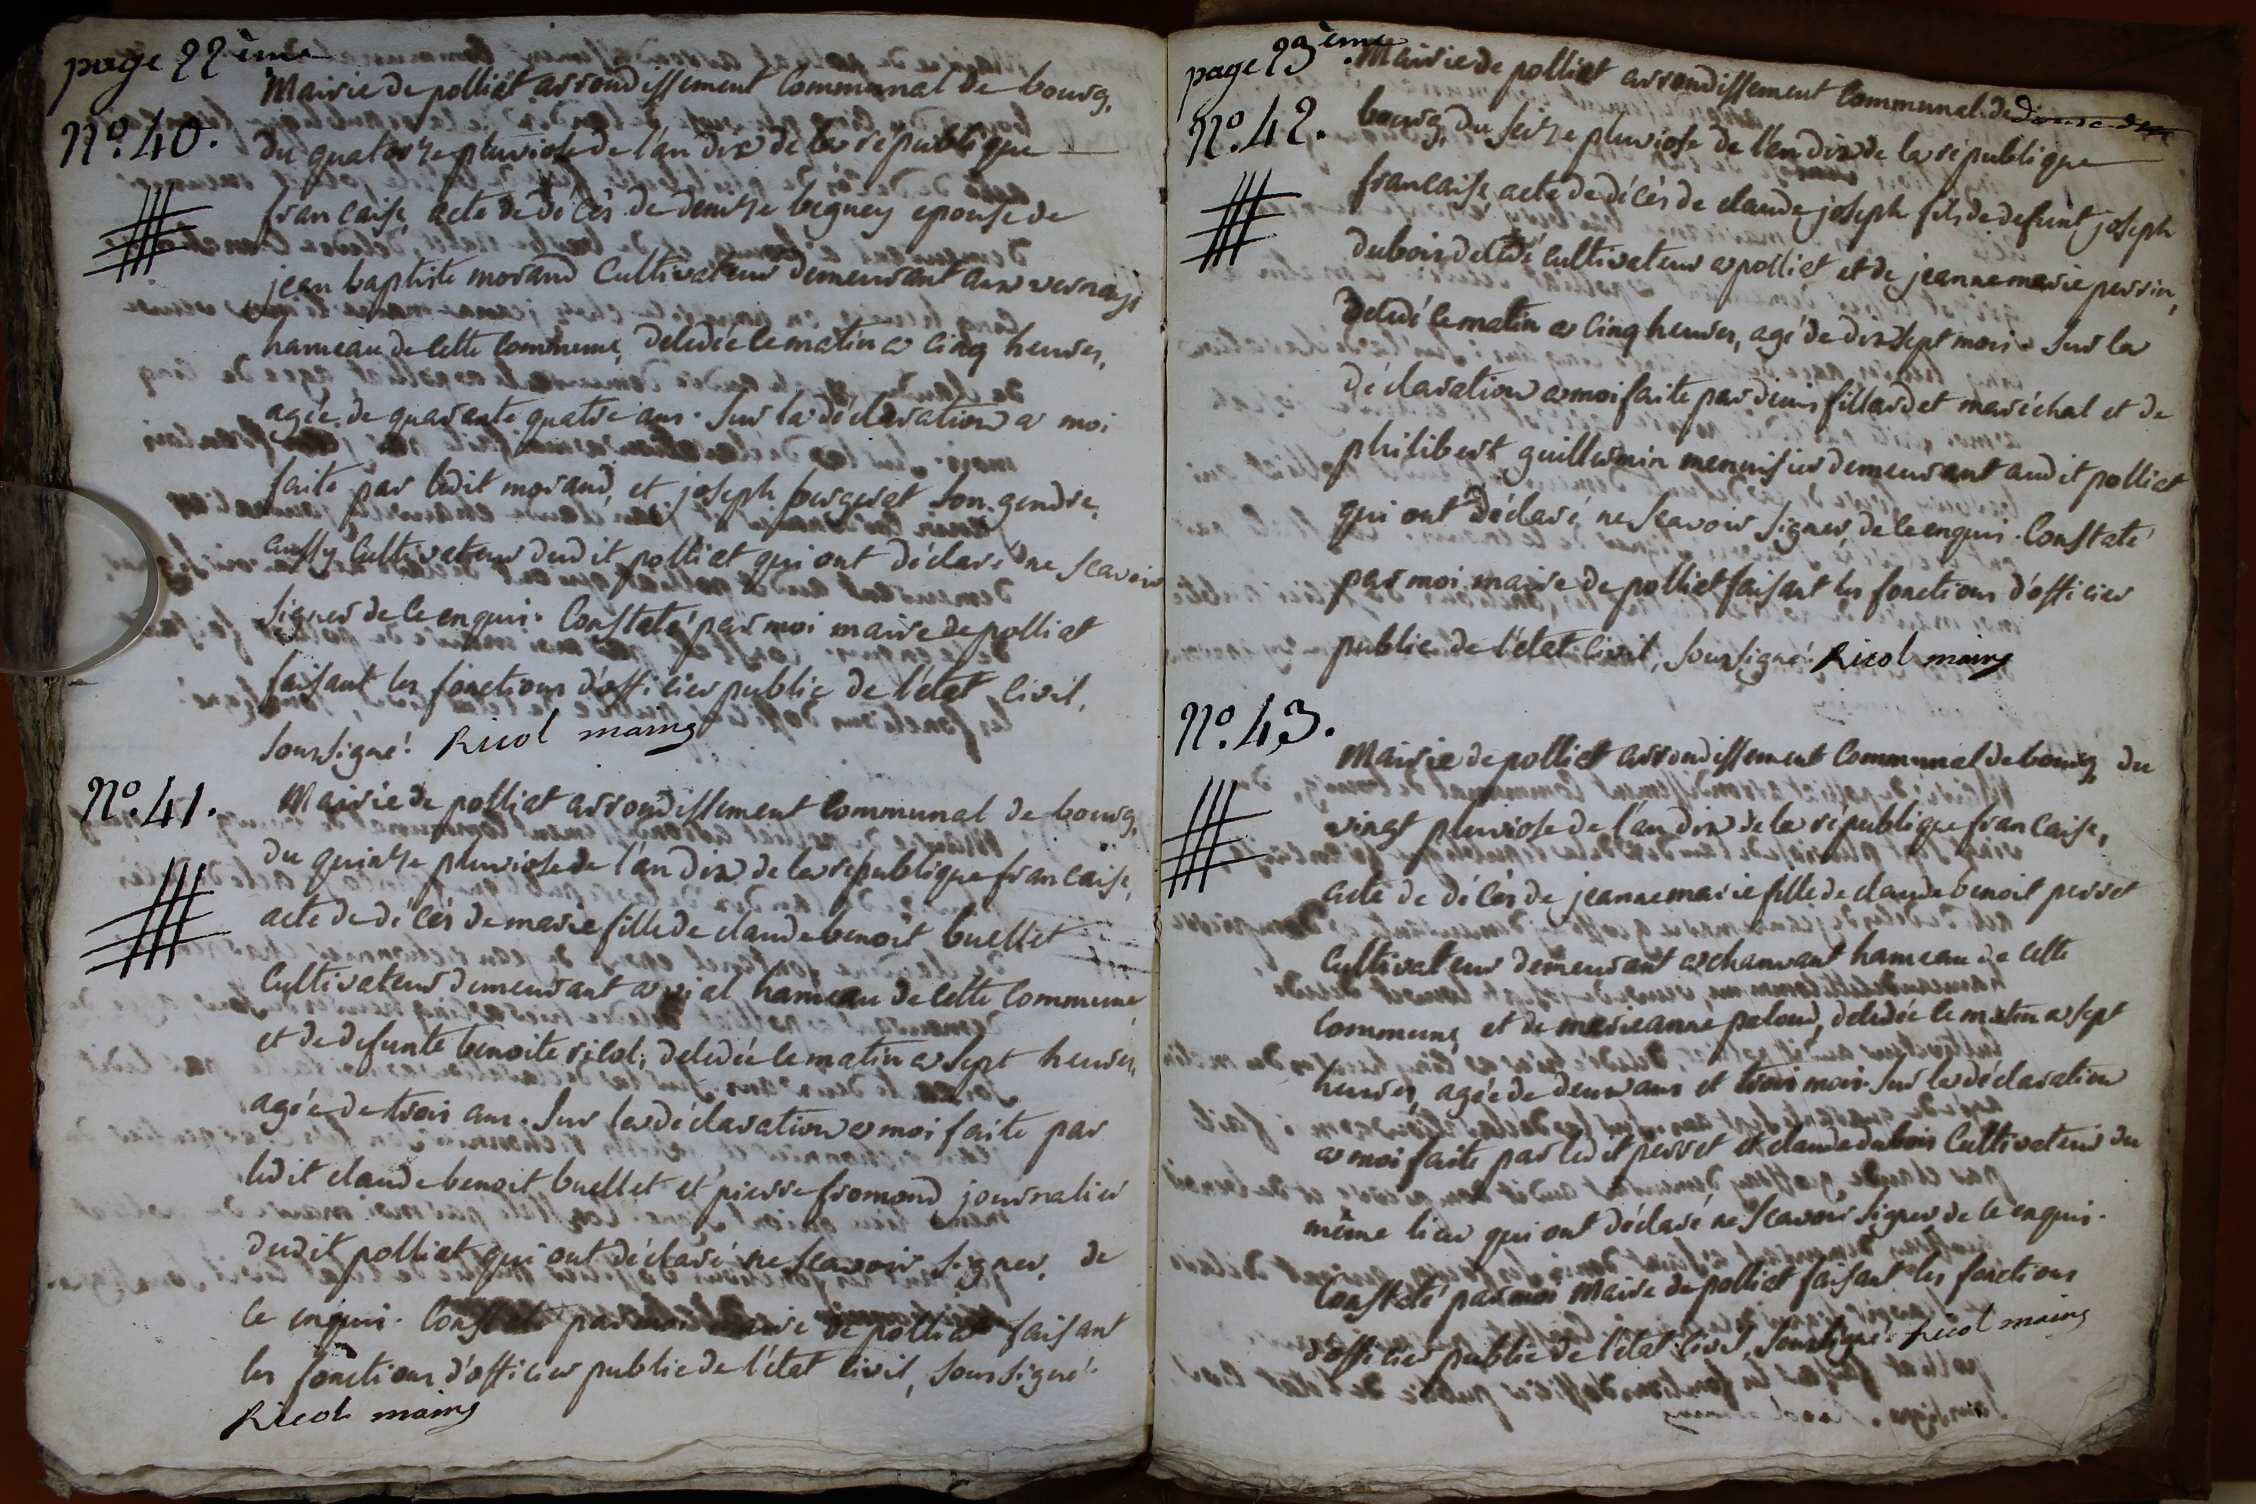 page 22ème
Mairie de polliat arrondissement Communal de bourg,
N.° 40.
du quatorze pluviose de l'an dix de la république
francaise, acte de décès de denize beguey epouse de
jean baptiste morand Cultivateur demeurant aux vernays
hameau de cette Commune, decedée le matin a cinq heures,
agée de quarante quatre ans. Sur la déclaration a moi
faite par ledit morand, et joseph bergerat son gendre,
aussy Cultivateur dudit polliat qui ont déclaré ne scavoir
signer de ce enquis. Constaté par moi maire de polliat
faisant les fonctions d'officier public de l'état civil,
soussigné. Ricol maire
N.° 41.
Mairie de polliat arrondissement Communal de bourg,
du quinze pluviose de l'an dix de la république francaise,
acte de décès de marie fille de claude benoit buellet
Cultivateur demeurant a vial hameau de cette Commune,
et de defunte benoite ricol, decedée le matin a sept heures,
agée de trois ans. Sur la déclaration a moi faite par
ledit claude benoit buellet et pierre fromond journalier
dudit polliat qui ont déclaré ne scavoir signer, de
ce enquis. Constaté par moi maire de polliat faisant
les fonctions d'officier public de l'état civil, soussigné.
Ricol maire
page 23ème
Mairie de polliat arrondissement Communal de
N.° 42.
bourg, du seize pluviose de l'an dix de la république
francaise, acte de décès de claude joseph fils de defunt joseph
dubois decedé cultivateur a polliat et de jeanne marie perrin,
decedé le matin a cinq heures, agé de dix sept mois. Sur la
déclaration a moi faite par denis fillardet maréchal et de
philibert guillermin menuisier demeurant audit polliat
qui ont déclaré ne scavoir signer, de ce enquis. Constaté
par moi maire de polliat faisant les fonctions d'officier
public de l'état civil, soussigné. Ricol maire
N.° 43.
Mairie de polliat arrondissement Communal de bourg, du
vingt pluviose de l'an dix de la république francaise,
acte de décès de jeanne marie fille de claude benoit perret
Cultivateur demeurant a chanvant hameau de cette
Commune, et de marieanne peloud, decedée le matin a sept
heures, agée de deux ans et trois mois. Sur la déclaration
a moi faite par ledit perret et claude dubois Cultivateur du
même lieu qui ont déclaré ne scavoir signer de ce enquis.
Constaté par moi Maire de polliat faisant les fonctions
d'officier public de l'état civil, soussigné. Ricol maire